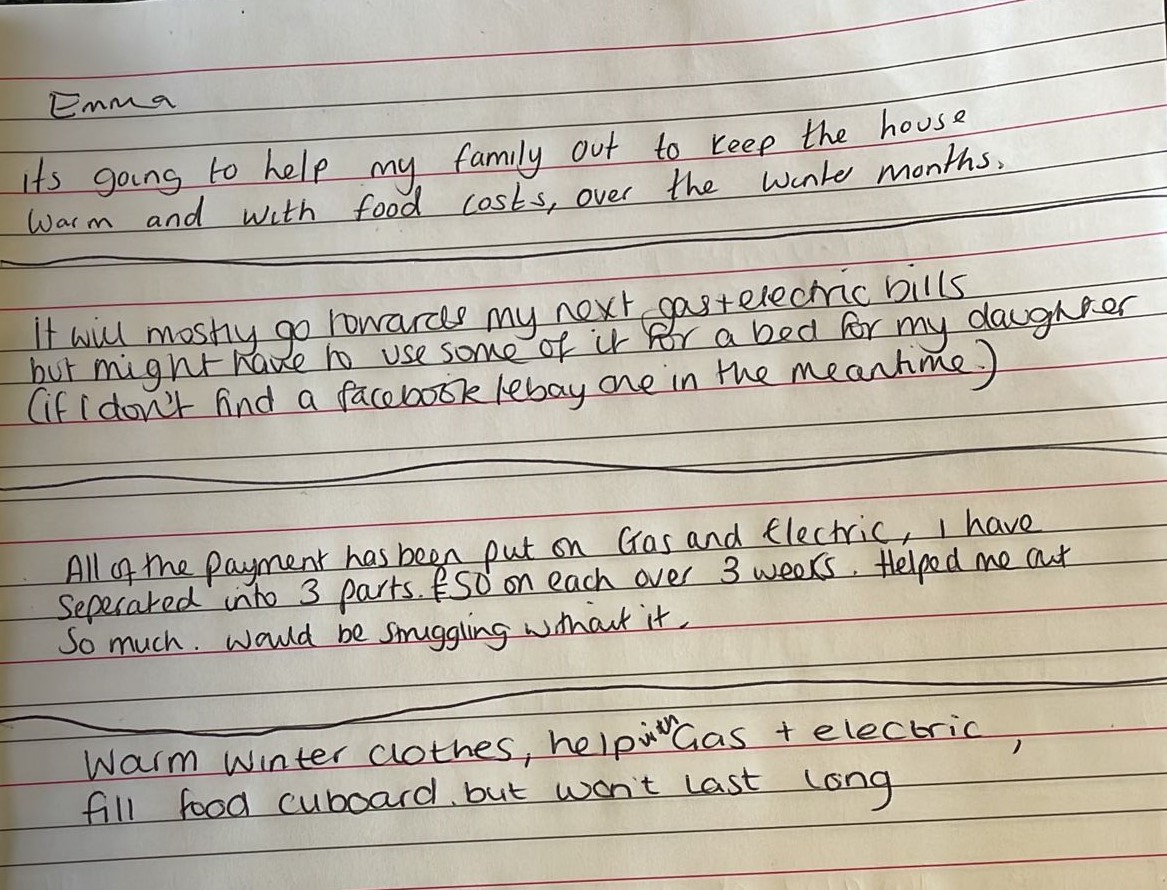 Emma
its going to help my family out to keep the house
warm and with food costs, over the winter months.
It will mostly go towards my next gas + electric bills
but might have to use some of it for a bed for my daughter
(if I don't find a facebook/ebay one in the meantime.)
All of the payment has been put on Gas and Electric, I have
seperated into 3 parts. £50 on each over 3 weeks. Helped me out
so much. would be struggling without it.
Warm winter clothes, help with Gas + electric,
fill food cuboard. but won't last long